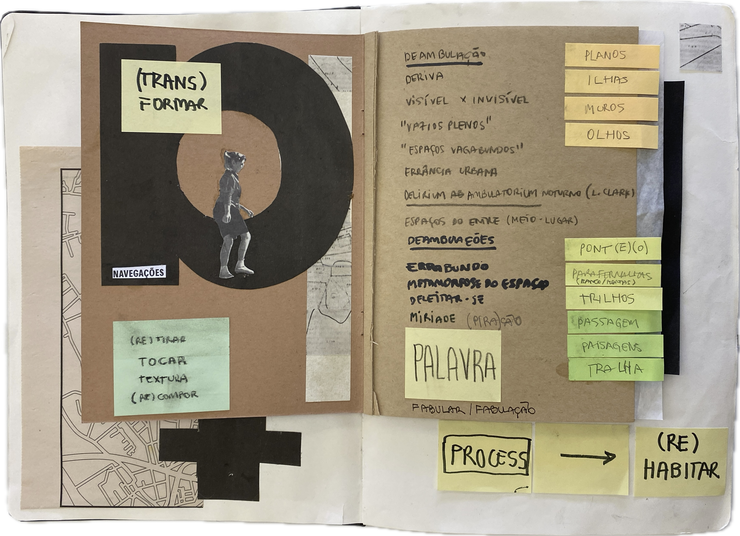 (TRANS)
FORMAR
NAVEGAÇÕES
(RE)TIRAR
TOCAR
TEXTURA
(RE)COMPOR
DEAMBULAÇÃO
DERIVA
VISÍVEL X INVISÍVEL
"VAZIOS PLENOS"
"ESPAÇOS VAGABUNDOS"
ERRÂNCIA URBANA
DELIRIUM AMBULATORIUM NOTURNO (L. CLARK)
ESPAÇOS DO ENTRE (MEIO-LUGAR)
DEAMBULAÇÕES
ERRABUNDO
METAMORFOSE DO ESPAÇO
DELEITAR-SE
MIRÍADE (PIRA)ÇÃO
PALAVRA
FABULAR/FABULAÇÃO
PLANOS
ILHAS
MUROS
OLHOS
PONT(E)(O)
TRILHOS
PASSAGEM
PAISAGENS
TRALHA
PROCESS
→
(RE)
HABITAR